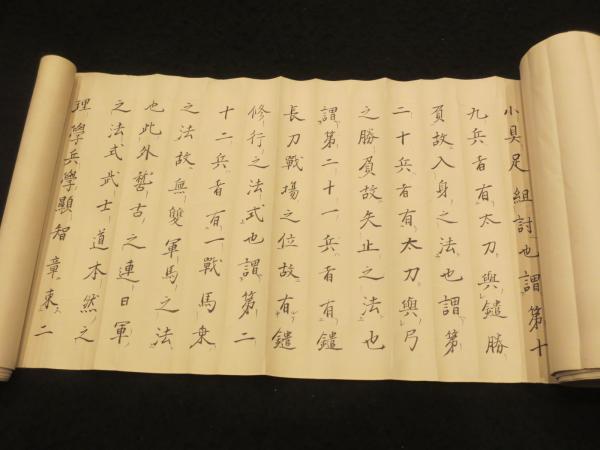 小具足組討也謂第十
九兵者有太刀與鑓勝
負故入身之法也謂第
二十兵者有太刀與弓
之勝負故矢止之法也
謂第二十一兵者有鑓
長刀戰場之位故有鑓
修行之法式也謂第二
十二兵者有一戰馬乗
之法故無雙軍馬之法
也此外嵆古之連日軍
之法式武士道本然之
理學兵學顯智章束二